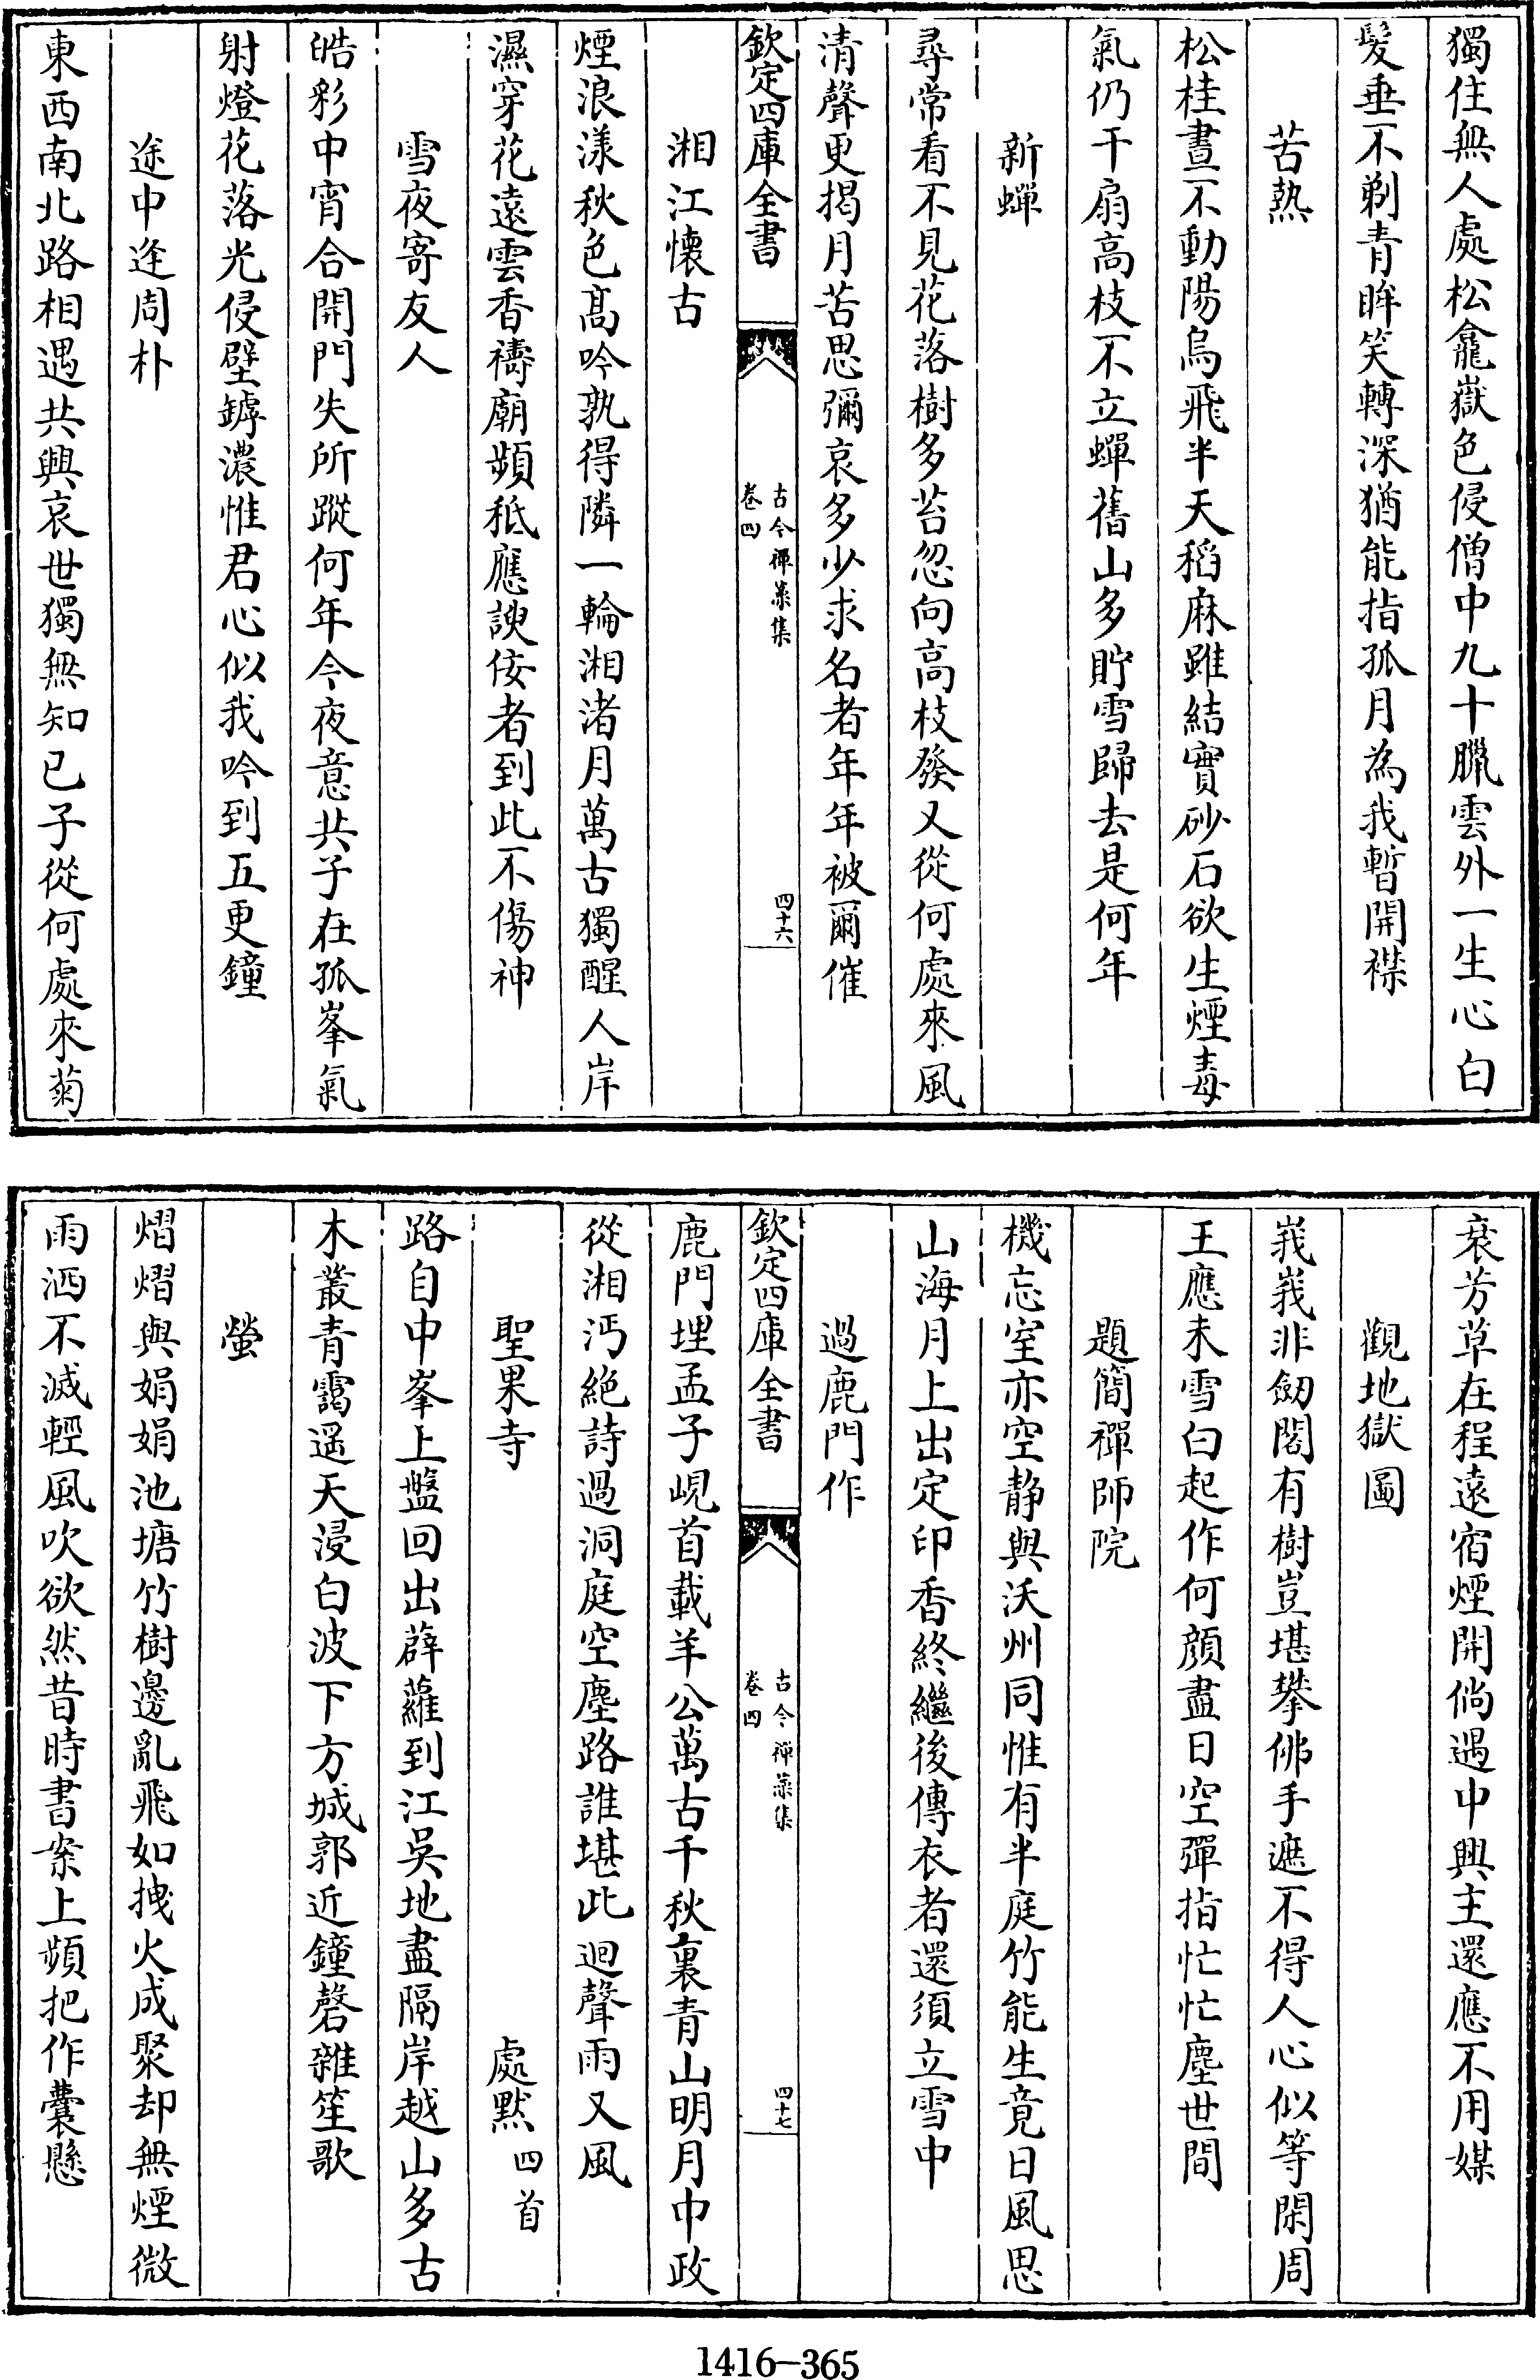 獨住無人處松龕嶽色侵僧中九十臘雲外一生心白
髮垂不剃青眸笑轉深猶能指孤月為我暫開襟
苦熱
松桂晝不動陽烏飛半天稻麻雖結實砂石欲生煙毒
氣仍干扇高枝不立蟬舊山多貯雪歸去是何年
新蟬
尋常看不見花落樹多苔忽向高枝發又從何處來風
清聲更揭月苦思彌哀多少求名者年年被爾催
欽定四庫全書
古今禪藻集
卷四
四十六
湘江懷古
煙浪漾秋色高吟孰得隣一輪湘渚月萬古獨醒人岸
濕穿花遠雲香禱廟頻秖應諛佞者到此不傷神
雪夜寄友人
皓彩中宵合開門失所蹤何年今夜意共子在孤峯氣
射燈花落光侵壁罅濃惟君心似我吟到五更鐘
途中逢周朴
東西南北路相遇共興哀世獨無知已子從何處來菊
衰芳草在程遠宿煙開倘遇中興主還應不用媒
觀地獄圖
峩峩非劒閣有樹豈堪攀佛手遮不得人心似等閑周
王應未雪白起作何顔盡日空彈指忙忙塵世間
題簡禪師院
機忘室亦空靜與沃州同惟有半庭竹能生竟日風思
山海月上出定印香終繼後傳衣者還須立雪中
過鹿門作
欽定四庫全書
古今禪藻集
卷四
四十七
鹿門埋孟子峴首載羊公萬古千秋裏青山明月中政
從湘沔絶詩過洞庭空塵路誰堪此迴聲雨又風
聖果寺 處默 四首
路自中峯上盤回出薜蘿到江吳地盡隔岸越山多古
木叢青靄遥天浸白波下方城郭近鐘磬雜笙歌
螢
熠熠與娟娟池塘竹樹邊亂飛如拽火成聚却無煙微
雨洒不滅輕風吹欲然昔時書案上頻把作囊懸
1416-365